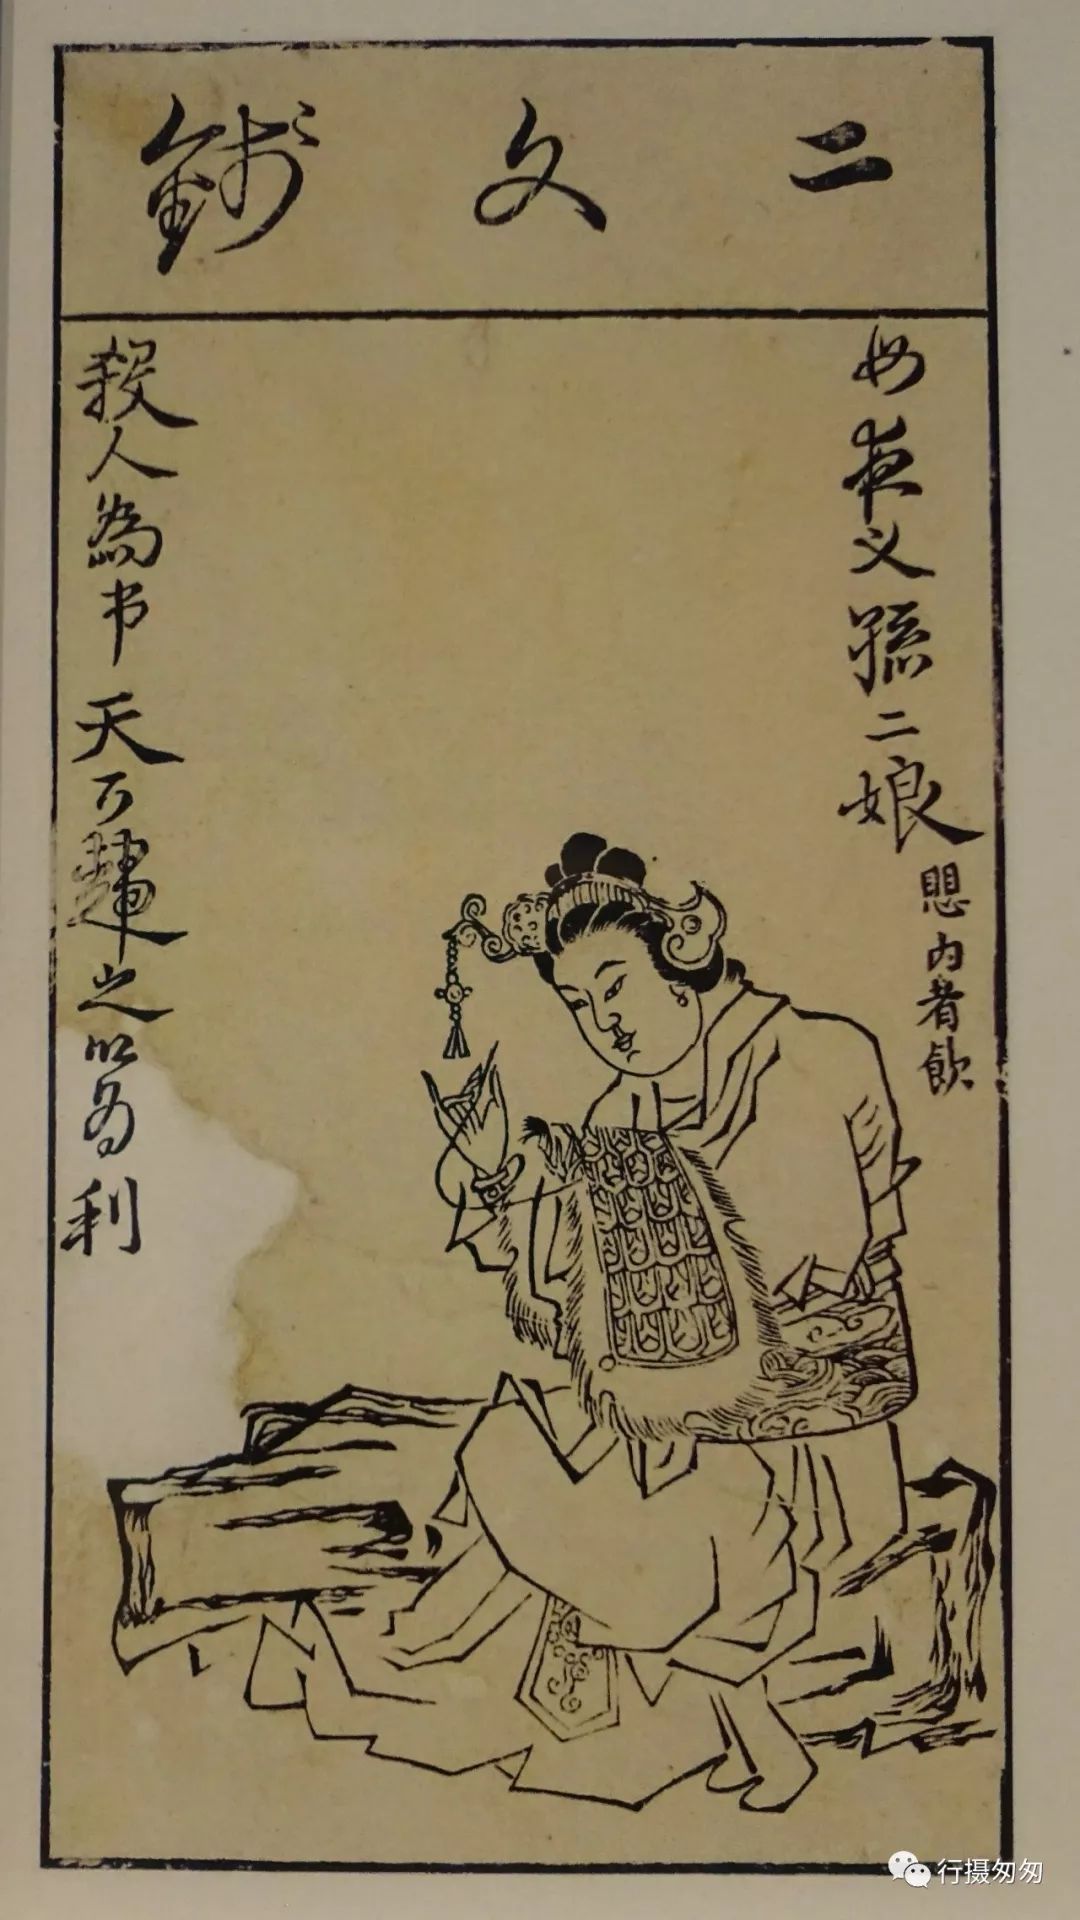 二文錢
母夜叉孫二娘
愳内者飲
殺人為市天下趨之以為利
行摄匆匆